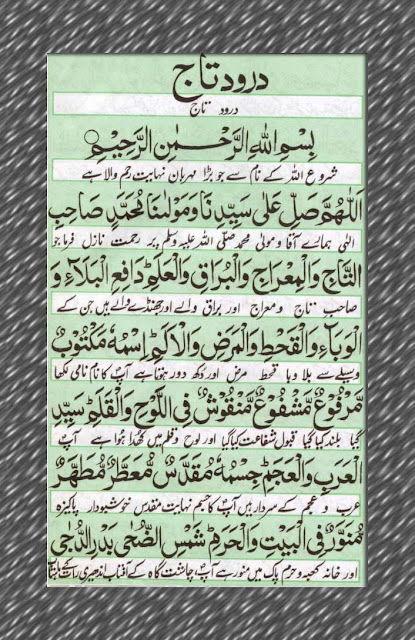 درود تاج
درود تاج
بِسْمِ اللهِ الرَّحْمٰنِ الرَّحِيْمِ
شروع اللہ کے نام سے جو بڑا مہربان نہایت رحم والا ہے
اَللّٰهُمَّ صَلِّ عَلٰى سَيِّدِنَا وَمَوْلٰنَا مُحَمَّدٍ صَاحِبِ
الٰہی ہمارے آقا و مولیٰ محمد صلی اللہ علیہ وسلم پر رحمت نازل فرما جو
التَّاجِ وَالْمِعْرَاجِ وَالْبُرَاقِ وَالْعَلَمِ دَافِعِ الْبَلَاءِ وَ
صاحب تاج و معراج اور براق والے اور جھنڈے والے ہیں جن کے
الْوَبَاءِ وَالْقَحْطِ وَالْمَرَضِ وَالْاَلَمِ اِسْمُهٗ مَكْتُوْبٌ
وسیلے سے بلا وبا قحط مرض اور دکھ دور ہوتا ہے آپ کا نام نامی لکھا
مَّرْفُوْعٌ مَّشْفُوْعٌ مَّنْقُوْشٌ فِى اللَّوْحِ وَالْقَلَمِ سَيِّدِ
گیا بلند کیا گیا قبول شفاعت کیا گیا اور لوح و قلم میں کھدا ہوا ہے آپ
الْعَرَبِ وَالْعَجَمِ جِسْمُهٗ مُقَدَّسٌ مُّعَطَّرٌ مُّطَهَّرٌ
عرب و عجم کے سردار ہیں آپ کا جسم نہایت مقدس خوشبودار پاکیزہ
مُّنَوَّرٌ فِى الْبَيْتِ وَالْحَرَمِ شَمْسِ الضُّحٰى بَدْرِ الدُّجٰى
اور خانہ کعبہ و حرم پاک میں منور ہے آپ چاشت گاہ کے آفتاب اندھیری رات کے